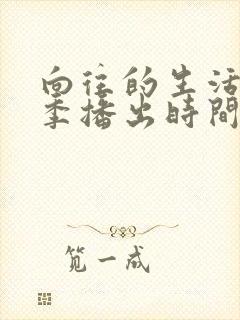 向往的生活
季播出時間
笕一成